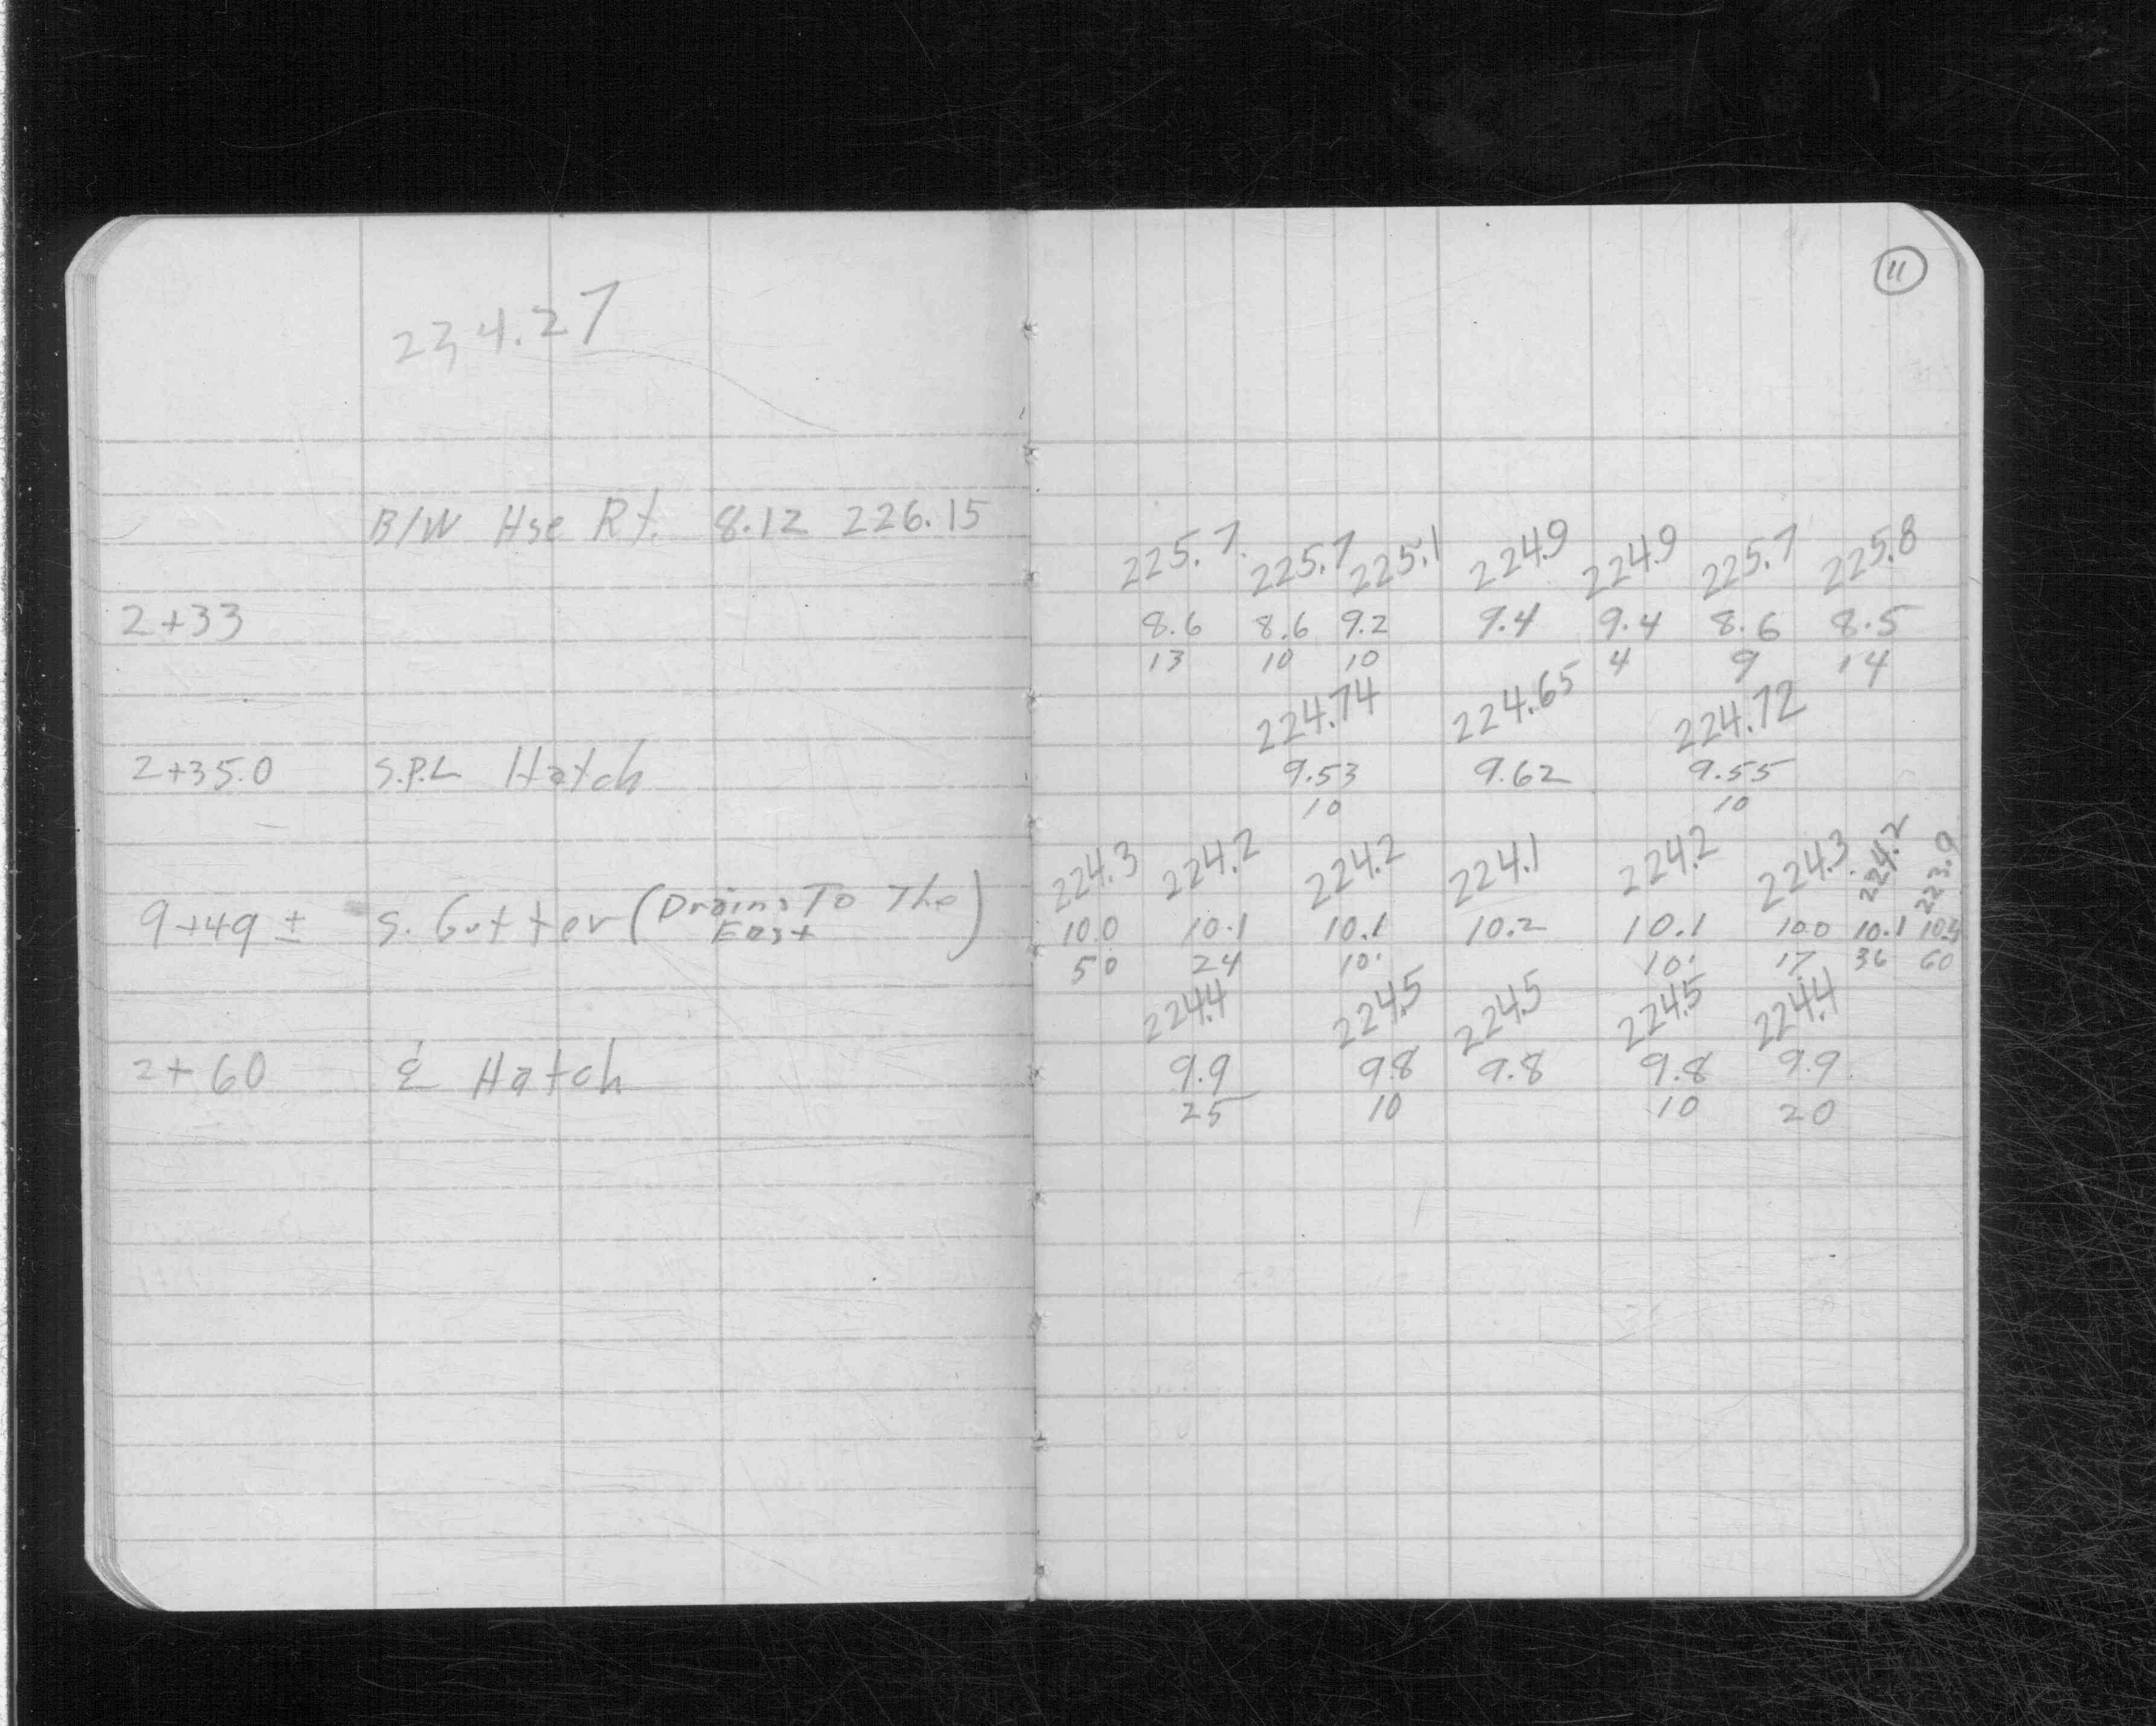 11
234.27
B/W Hse Rt. 8.12 226.15
225.7 225.7 225.1 224.9 224.9 225.7 225.8
2+33 8.6 8.6 9.2 9.4 9.4 8.6 8.5
13 10 10 4 9 14
224.74 224.65 224.72
2+35.0 S.P.L Hatch 9.53 9.62 9.55
10 10
224.3 224.2 224.2 224.1 224.2 224.3 224.2 223.9
9+49 ± S. Gutter (Drains To The East) 10.0 10.1 10.1 10.2 10.1 10.0 10.1 10.4
50 24 10 10 17 36 60
224.4 224.5 224.5 224.5 224.4
2+60 & Hatch 9.9 9.8 9.8 9.8 9.9
25 10 10 20